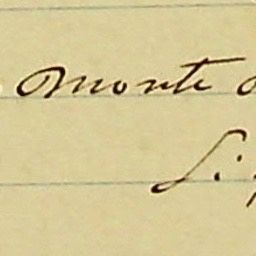 Monte
S.